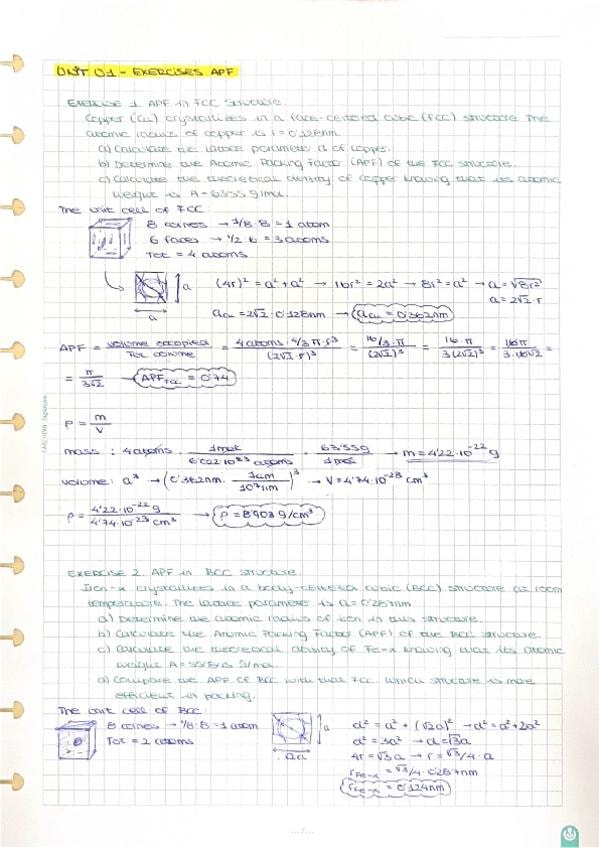 UNIT 01 - EXERCISES APF
EXERCISE 1. APF in FCC structure.
Copper (Cu) crystallizes in a face-centered cubic (FCC) structure. The
atomic radius of copper is r = 0'128nm.
a) Calculate the lattice parameter a of copper.
b) Determine the Atomic Packing Factor (APF) of the FCC structure.
c) Calculate the theoretical density of copper knowing that its atomic
weight is A = 63'55 g/mol.
The unit cell of FCC
8 corners → 1/8 · 8 = 1 atom
6 faces → 1/2 · 6 = 3 atoms
Tot = 4 atoms
a
a
(4r)² = a² + a² → 16r² = 2a² → 8r² = a² → a = √8r²
a = 2√2 · r
aCu = 2√2 · 0'128nm → aCu = 0'362nm
APF = volume occupied / Tot volume = 4 atoms · 4/3 π · r³ / (2√2 · r)³ = 16/3 · π / (2√2)³ = 16 · π / 3(2√2)³ = 16π / 3 · 16√2 =
= π / 3√2 → APF FCC = 0'74
ρ = m / V
mass : 4 atoms · 1 mol / 6'022·10²³ atoms · 63'55g / 1 mol → m = 4'22·10⁻²² g
volume: a³ → (0'362nm · 1cm / 10⁷nm)³ → V = 4'74·10⁻²³ cm³
ρ = 4'22·10⁻²² g / 4'74·10⁻²³ cm³ → ρ = 8'903 g/cm³
EXERCISE 2. APF in BCC structure.
Iron-α crystallizes in a body-centered cubic (BCC) structure at room
temperature. The lattice parameter is a = 0'287nm
a) Determine the atomic radius of iron in this structure.
b) Calculate the Atomic Packing Factor (APF) of the BCC structure.
c) Calculate the theoretical density of Fe-α knowing that its atomic
weight A = 55'845 g/mol.
d) Compare the APF of BCC with that FCC. Which structure is more
efficient in packing.
The unit cell of BCC:
8 corners → 1/8 · 8 = 1 atom
Tot = 2 atoms
a
√2a
d² = a² + (√2a)² → d² = a² + 2a²
d² = 3a² → d = √3a
4r = √3a → r = √3/4 · a
rFe-α = √3/4 · 0'287nm
rFe-α = 0'124nm
.../...